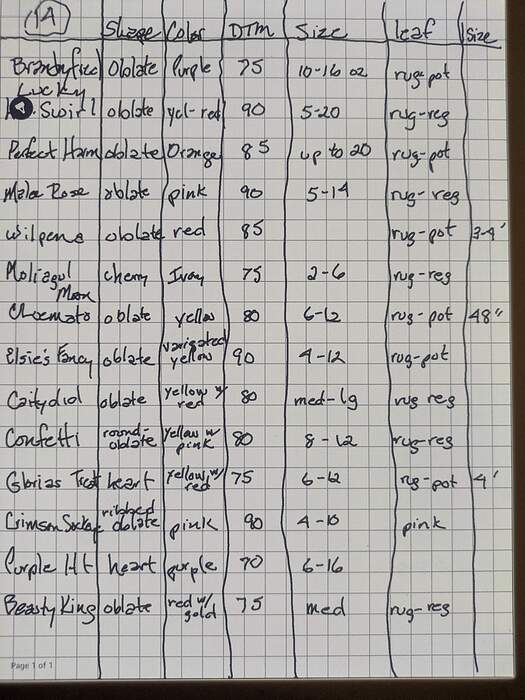 1A Shape Color DTM Size leaf size
Brandyfred Oblate Purple 75 10-16 oz rug-pot
Lucky
Swirl oblate yel-red 90 5-20 rug-reg
Perfect Harm oblate Orange 85 up to 20 rug-pot
Mala Rose oblate pink 90 5-14 rug-reg
Wilpena oblate red 85 rug-pot 3-4'
Moliagul cherry Ivory 75 2-6 rug-reg
Moon
Chocmato oblate yellow 80 6-12 rug-pot 48"
Elsie's Fancy oblate varigated 90 4-12 rug-pot
yellow
Caitydid oblate yellow w/ 80 med-lg rug reg
red
Confetti round- yellow w 80 8-12 rug-reg
oblate pink
Glorias Treat heart yellow w/ 75 6-12 rug-pot 4'
red
Crimson ribbed pink 90 4-10 pink
oblate
Purple Ht heart purple 70 6-16
Beasty King oblate red w/ 75 med rug-reg
gold
Page 1 of 1